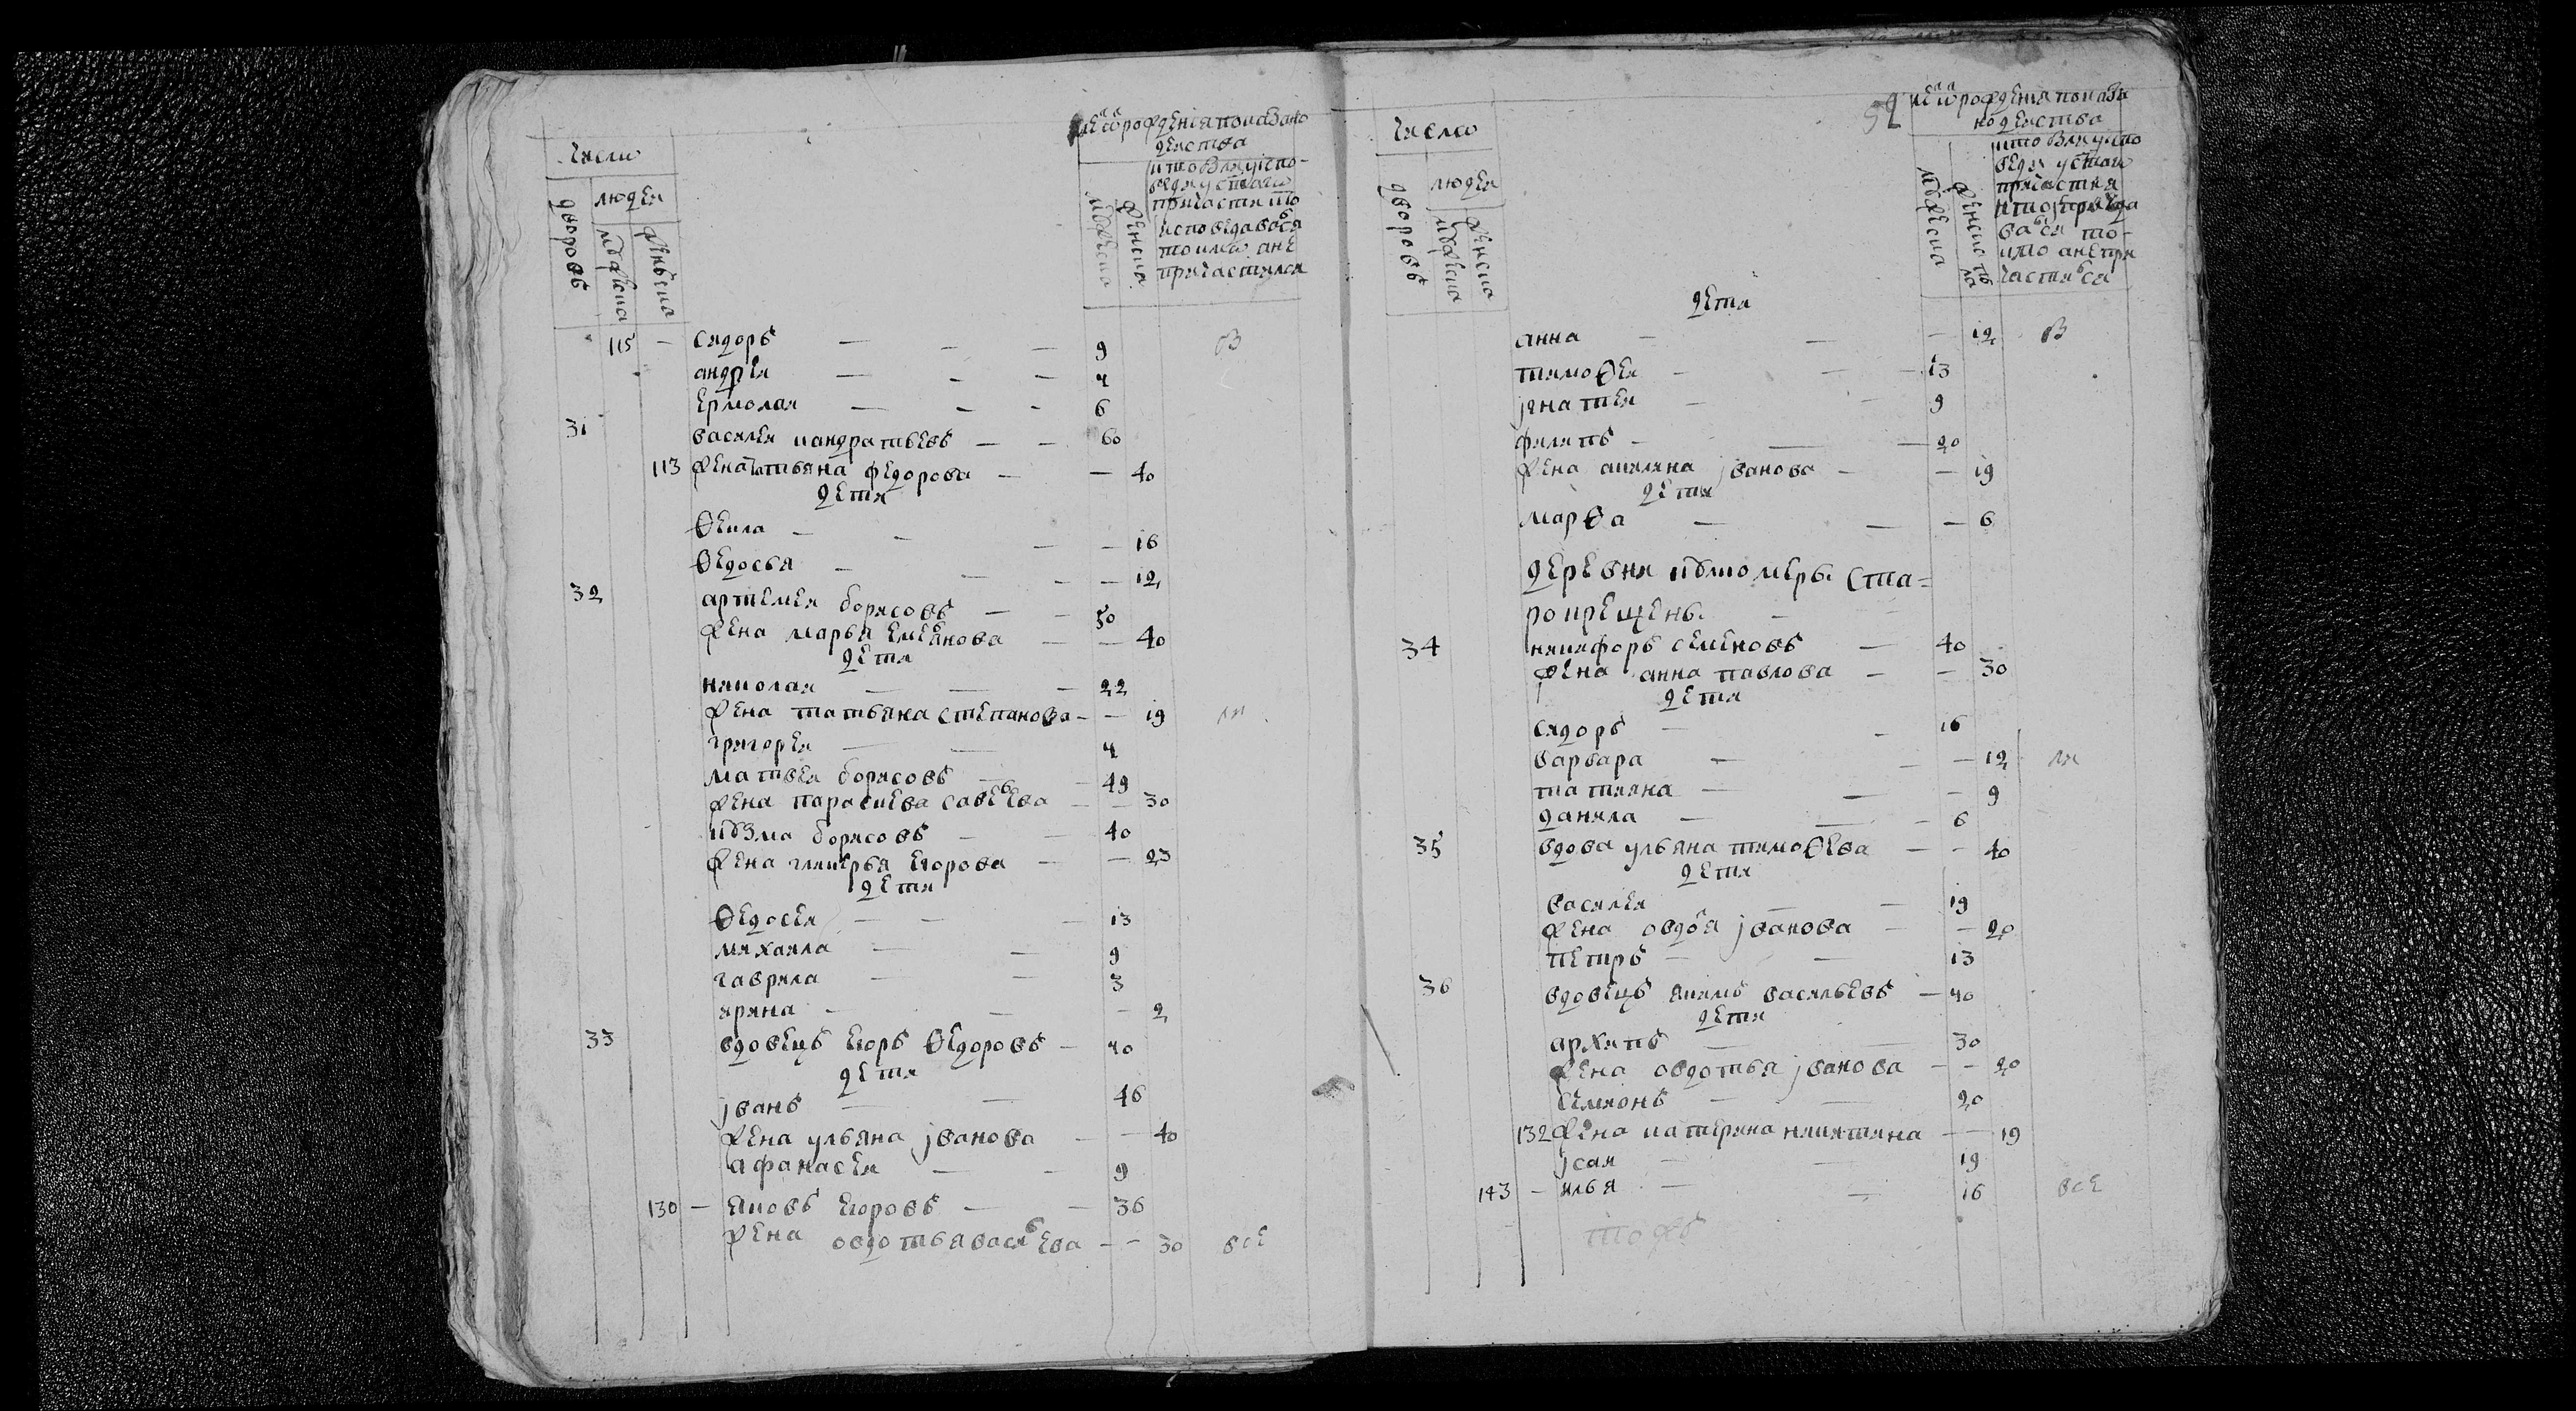 число
дворовъ
людей
мужеска
женска
лета от рожденiя показано
действа
кто были у испо-
веди у святаго
причастия кто
исповедовался
токмо а не
причастился
115 — сидоръ — — — 9
андрей — — — 4
ермолай — — — 6
31 василей кандратьевъ — — 60
113 жена татьяна федорова — — 40
дети
Ѳекла — — — — 16
Ѳедосья — — — — 12
32 артемей борисовъ — — 50
жена марья емельянова — — 40
дети
николай — — — 22
жена татьяна степанова — — 19
григорей — — 4
матвей борисовъ — — 49
жена параскева савельева — — 30
кузма борисовъ — — 40
жена гликерья егорова — — 23
дети
Ѳедосей — — — 13
михаила — — 9
гаврила — — 3
ирина — — — 2
33 вдовецъ егоръ Ѳедоровъ — 70
дети
јванъ — — 46
жена ульяна јванова — — 40
афанасей — — 9
130 — яковъ егоровъ — — 36
жена овдотья васильева — — 30 все
52
число
дворовъ
людей
мужеска
женска
лета от рожденiя показа
но действа
кто были у испо
веди у святаго
причастия
дети
анна — — — 12
тимоѲей — — — 13
јгнатей — — 9
филипъ — — — 20
жена акилина јванова — — 19
дети
марѲа — — — 6
деревня ста=
рокрещенъ —
34 никифоръ семеновъ — 40
жена анна павлова — — 30
дети
сидоръ — — 16
варвара — — — 12
татияна — — — 9
данила — — — 6
35 вдова ульяна тимоѲева — — 40
дети
василей — — 19
жена овдотья јванова — — 20
петръ — — 13
36 вдовецъ якимъ васильевъ — 70
дети
архипъ — — 30
жена овдотья јванова — — 20
симионъ — — 20
132 жена катерина никитина — — 19
јсай — — 19
143 — илья — — 16 все